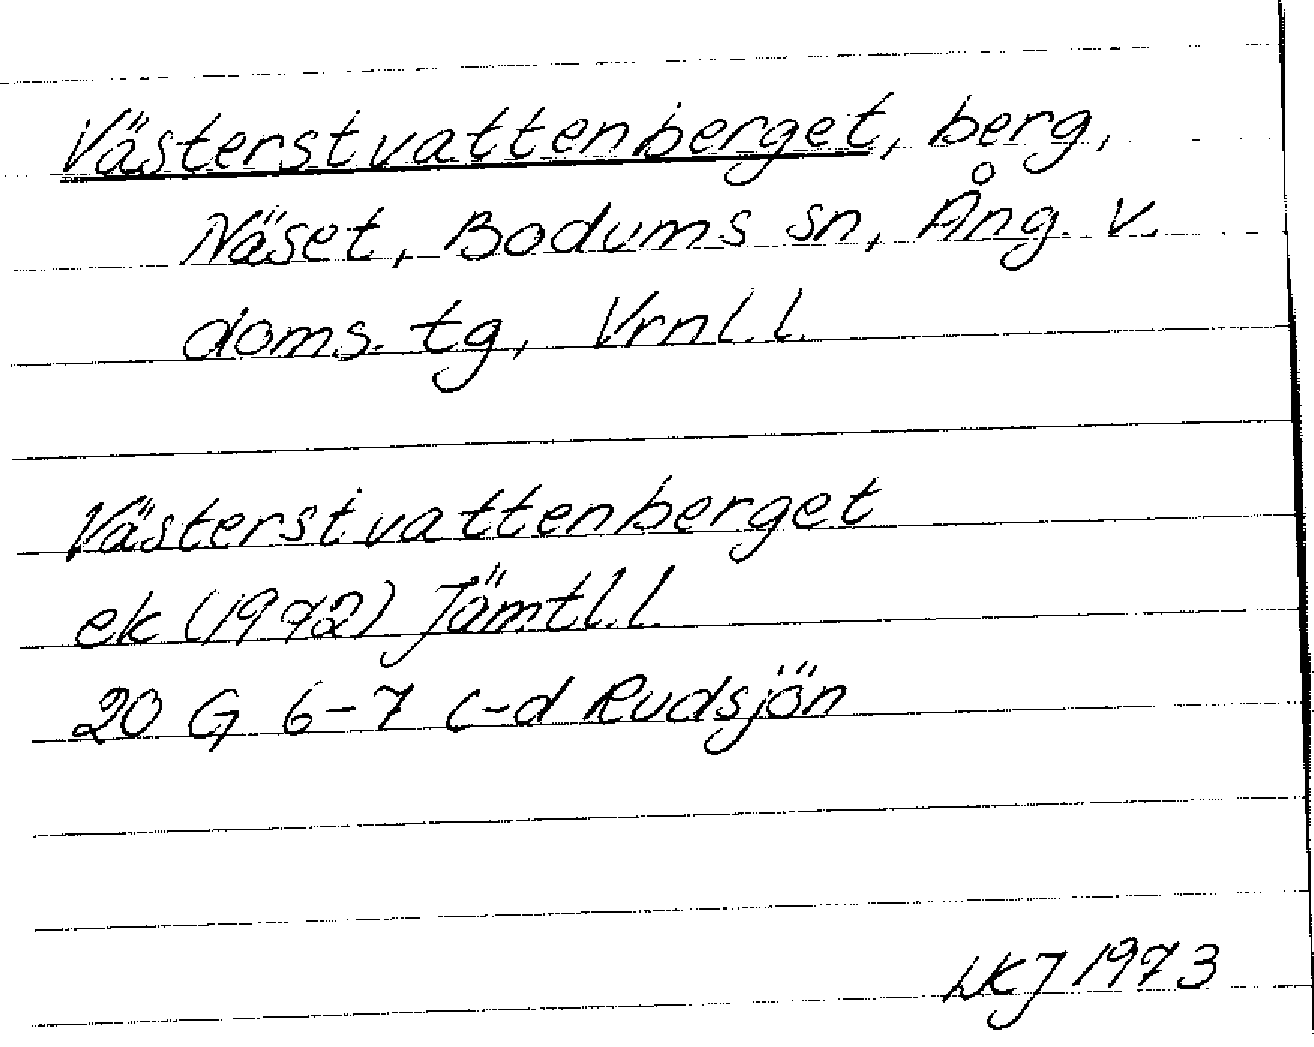 Västerstvattenberget, berg,
Näset, Bodums sn, Ång. v.
doms. tg, Vrnl.l.
Västerstvattenberget
ek (1972) Jämtl.l.
20 G 6-7 c-d Rudsjön
LKJ 1973